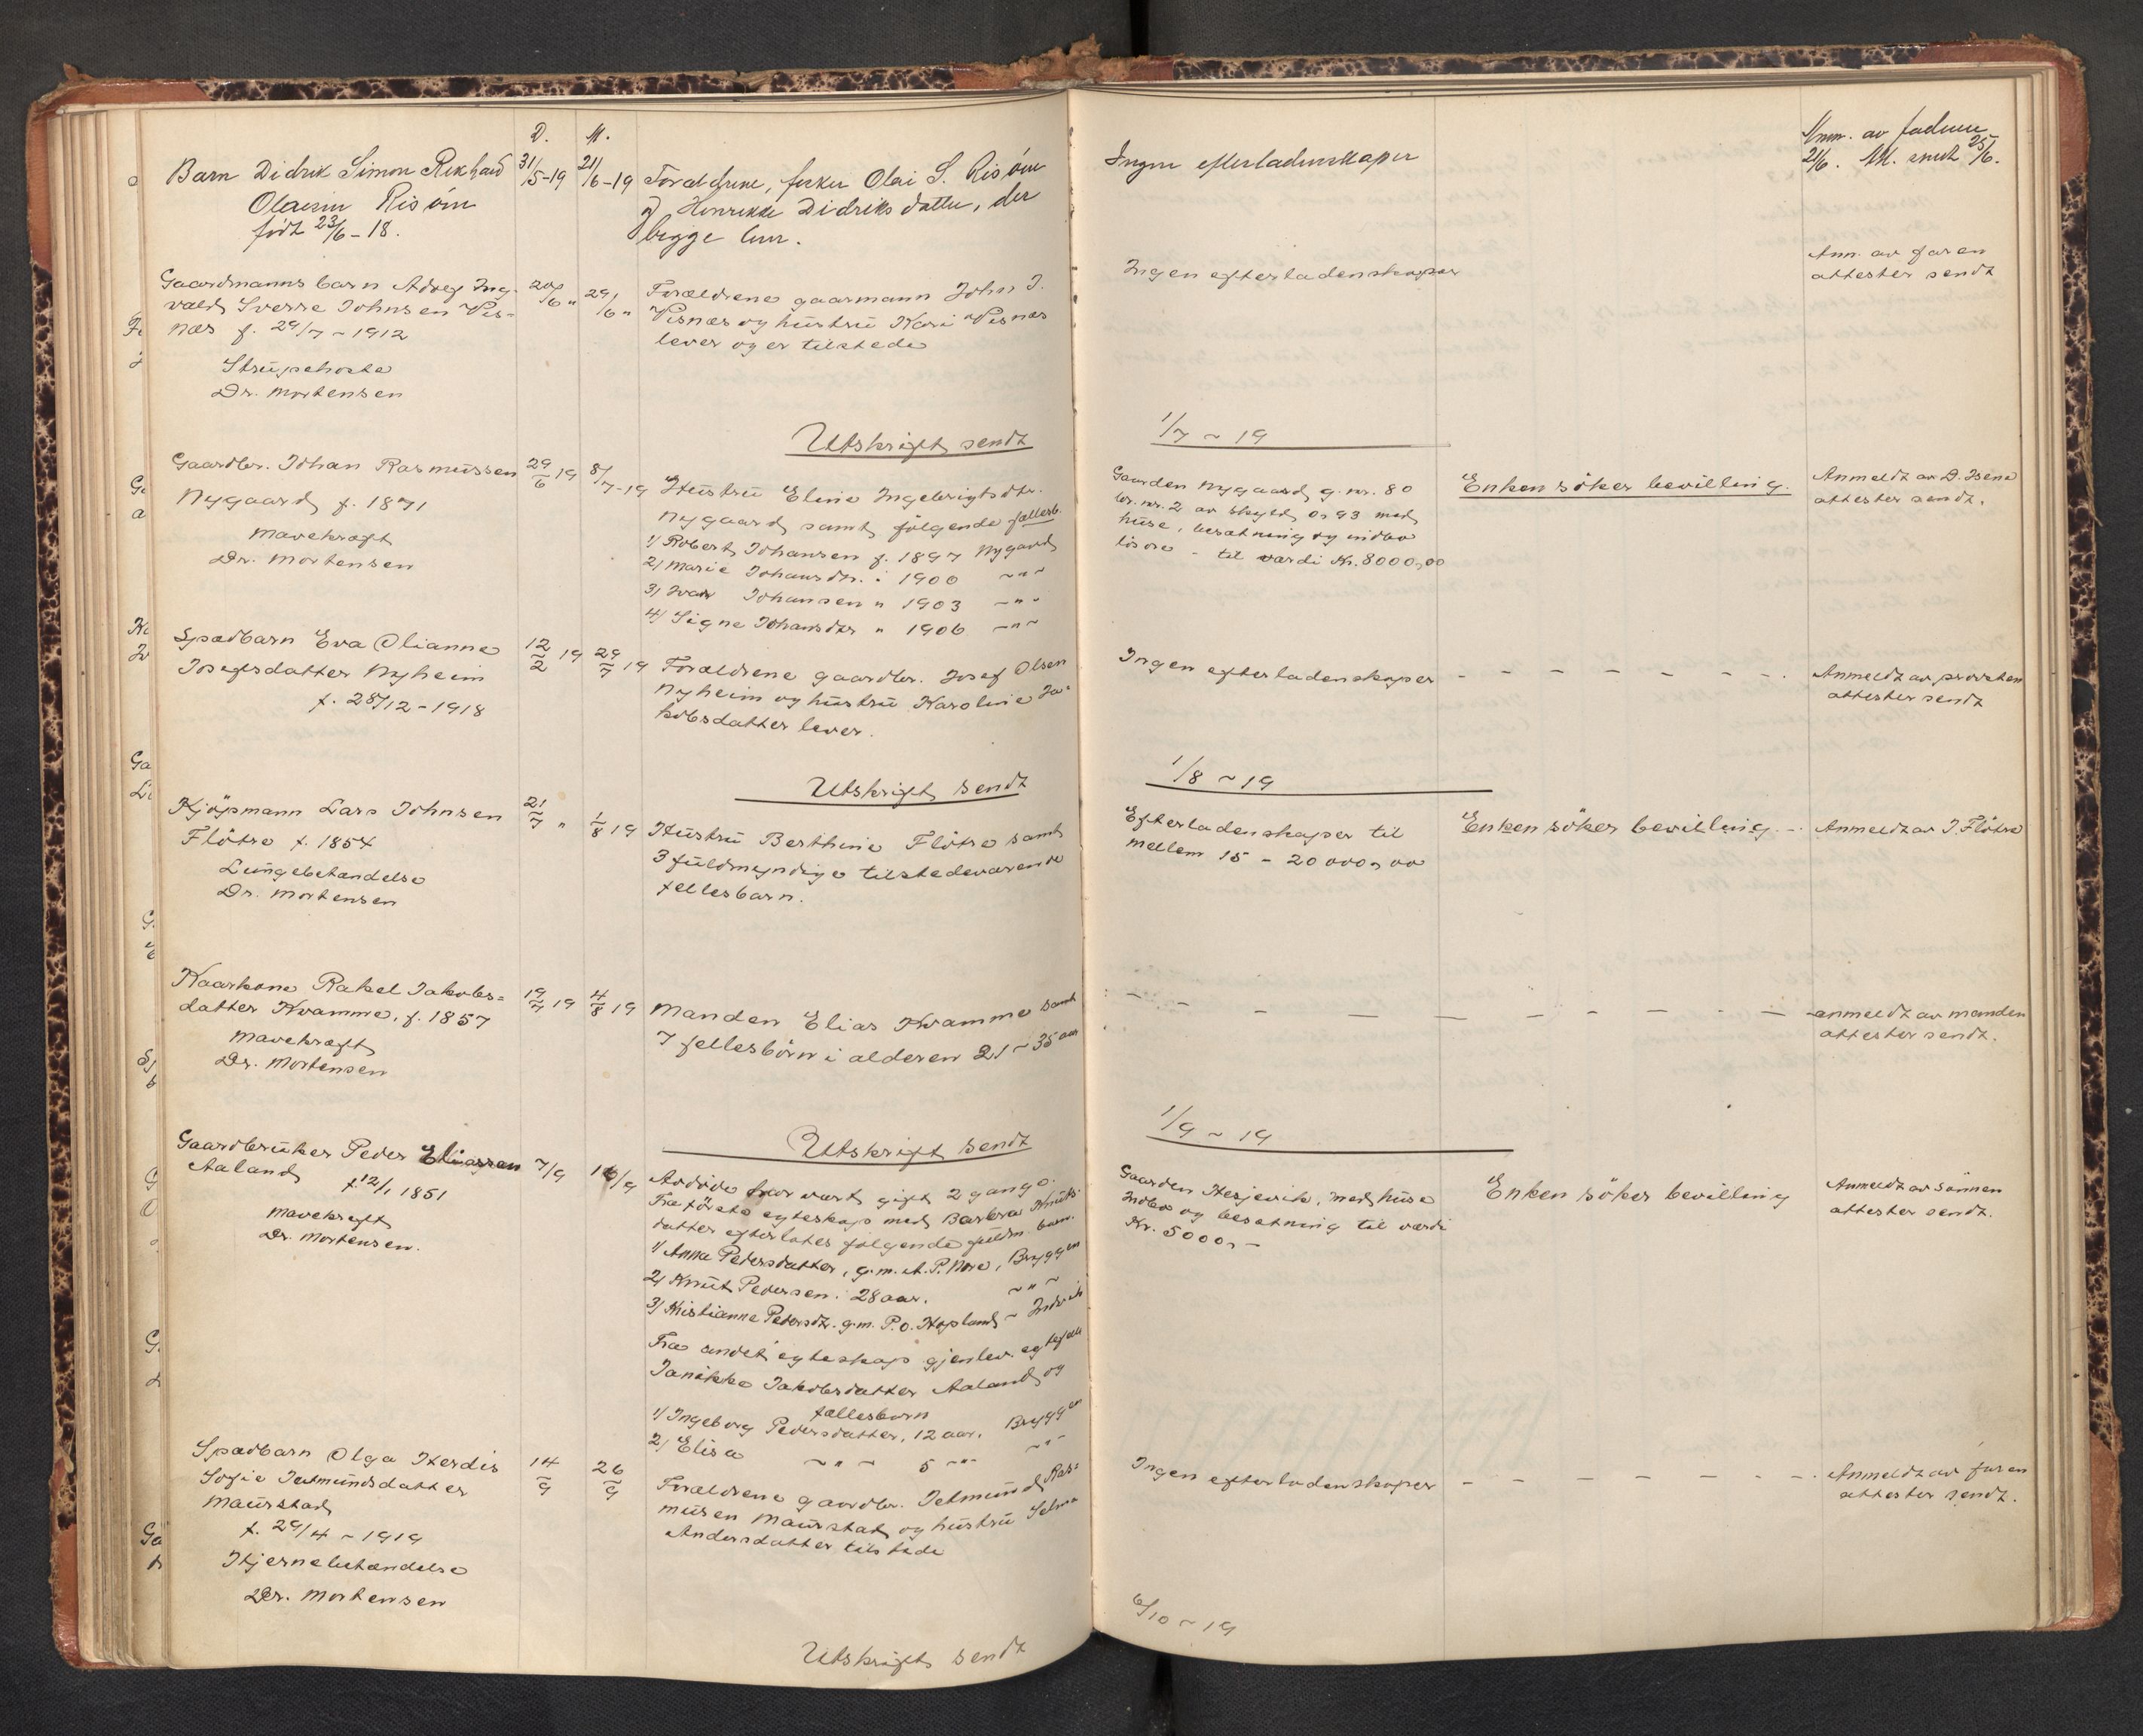 D. M.
Barn Didrik Simon Rikhard 31/5-19 21/6-19 Forældrene, fisker Olai S. Risöen
Olaisen Risöen og Henrikke Didriksdatter, der
født 23/6-18. begge lever.
Ingen efterladenskaper
Anm. av faderen
21/6. Att. sendt 25/6.
Gaardmanns barn Ing- 20/6 " 29/6 " Forældrene gaarmann John J.
vald Sverre Johnsen Vis- Visnæs og hustru Kari Visnæs
næs f. 29/7-1912 lever og er tilstede
Strupehoste
Dr. Mortensen
Ingen efterladenskaper
Anm. av faren
attester sendt
Utskrift sendt 1/7-19
Gaardbr. Johan Rasmussen 29/6 19 8/7-19 Hustru Eline Ingebrigtsdtr.
Nygaard f. 1871 Nygaard samt følgende fællesb.
Mavekræft 1) Robert Johansen f. 1897 Nygaard
Dr. Mortensen 2) Marie Johansdtr. " 1900 -"-
3) Ivar Johansen " 1903 -"-
4) Signe Johansdtr " 1906 -"-
Gaarden Nygaard g. nr. 80
br. nr. 2 av skyld 0,93 med
huse, besætning og indbo
lösöre - til værdi Kr. 8000,00
Enken söker bevilling.
Anmeldt av D. Isene
attester sendt.
Spædbarn Eva Olianne 12/2 19 29/7 19 Forældrene gaardbr. Josef Olsen
Josefsdatter Nyheim Nyheim og hustru Karoline Ja-
f. 28/12-1918 kobsdatter lever.
Ingen efterladenskaper - - - - - - -
Anmeldt av provsten
attester sendt
Utskrift sendt 1/8-19
Kjöpmann Lars Johnsen 21/7 " 1/8 19 Hustru Berthine Flötre samt
Flötre f. 1854 3 fuldmyndige tilstedeværende
Lungebetændelse fellesbarn.
Dr. Mortensen
Efterladenskaper til
mellem 15 - 20000,00
Enken söker bevilling. -
Anmeldt av J. Flötre
Kaarkone Rakel Jakobs- 19/7 19 4/8 19 Manden Elias Kvamme samt
datter Kvamme, f. 1857 7 fellesbörn i alderen 21-35 aar
Mavekræft
Dr. Mortensen
- - - - - - - - -
anmeldt av manden
attester sendt.
Utskrift sendt 1/9-19
Gaardbruker Peder Eliassen 7/9 16/9 Avdöde har vært gift 2 gange.
Aaland f. 12/1 1851 Fra förste egteskap med Barbra Knuts-
Mavekræft datter efterlates følgende fuldm barn.
Dr. Mortensen. 1) Anna Pedersdatter, g.m. A. P. Nore, Bryggen
2) Knut Pedersen. 28 aar. -"-
3) Kristianne Pedersdtr. g.m. P. O. Hopland - Indvik
Fra andet egteskap gjenlev. egtefelle
Janikke Jakobsdatter Aaland og
fællesbarn
1) Ingeborg Pedersdatter, 12 aar, Bryggen
2) Elisa -"- 5 -"- -"-
Gaarden Hesjevik, med huse
Indbo og besetning til værdi
Kr. 5000,-
Enken söker bevilling
Anmeldt av sönnen
attester sendt.
Spædbarn Olga Herdis 14/9 26/9 Forældrene gaardbr. Jetmund Ras-
Sofie Jetmundsdatter musen Maurstad og hustru Selma
Maurstad Andersdatter tilstede
f. 29/4-1919
Hjernebetændelse
Dr. Mortensen
Ingen efterladenskaper - - - - - - - -
Anmeldt av faren
attester sendt.
Utskrift sendt 6/10-19